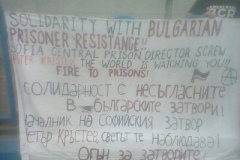 SOLIDARITY WITH BULGARIAN
PRISONER RESISTANCE!!
SOFIA CENTRAL PRISON DIRECTOR SCREW
PETER KRESTEV THE WORLD IS WATCHING YOU!!!
FIRE TO PRISONS!
СОЛИДАРНОСТ С НЕСЪГЛАСНИТЕ
В БЪЛГАРСКИТЕ ЗАТВОРИ!
НАЧАЛНИК НА СОФИЙСКИЯ ЗАТВОР
ПЕТЪР КРЪСТЕВ, СВЕТЪТ ТЕ НАБЛЮДАВА!
ОГЪН ЗА ЗАТВОРИТЕ